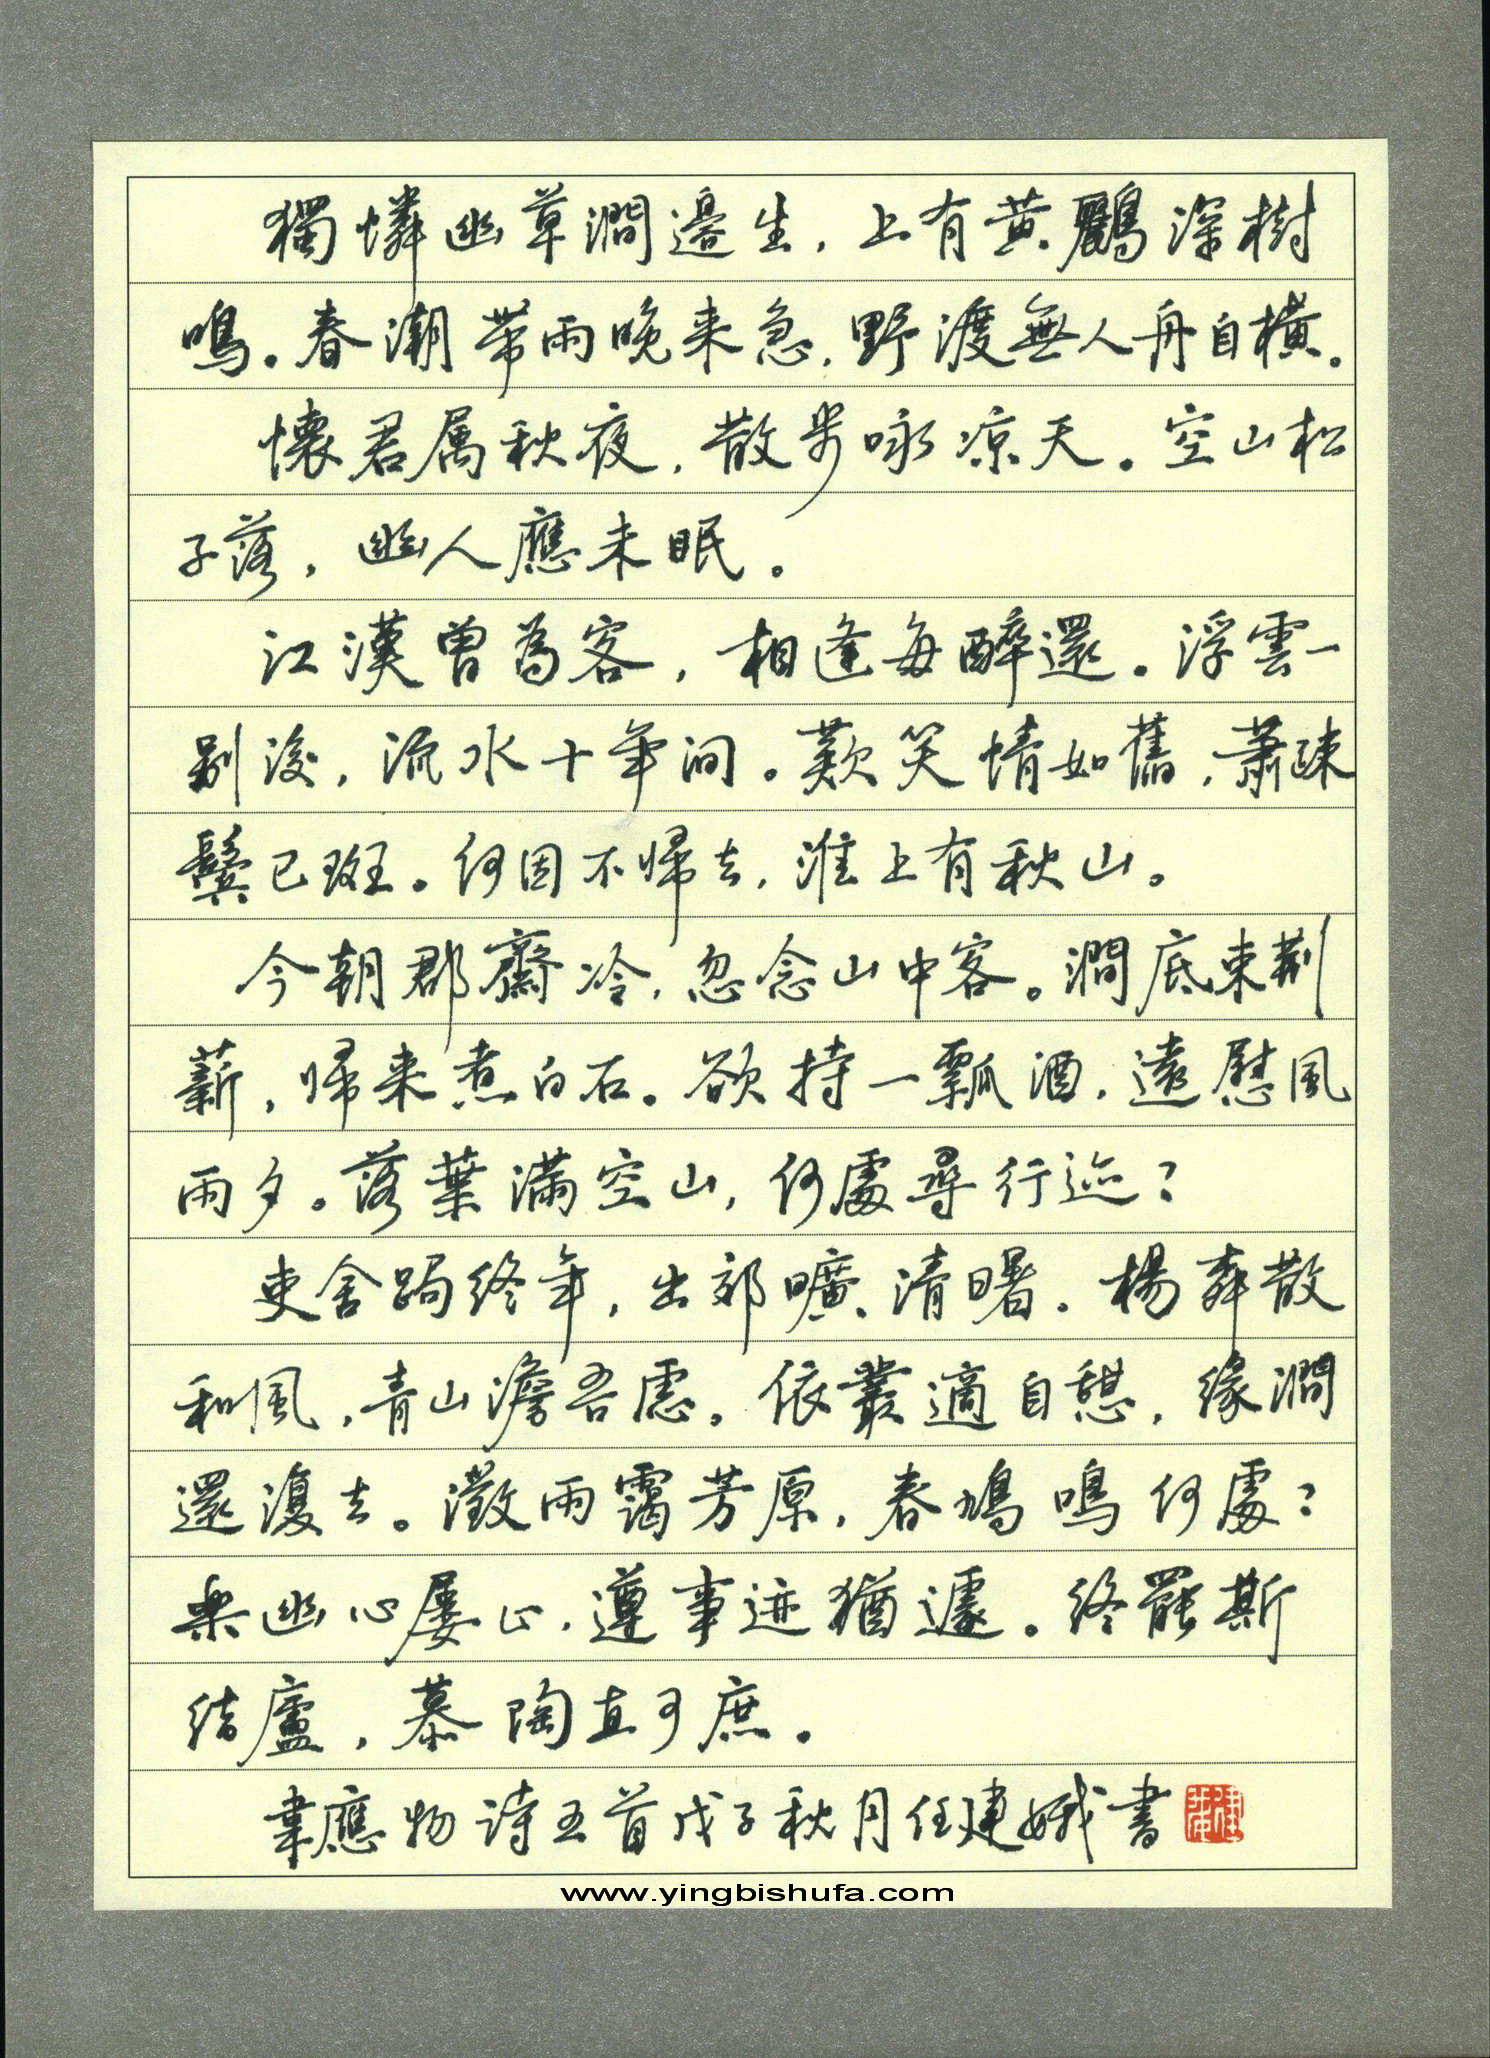 獨憐幽草澗邊生，上有黄鸝深樹
鳴。春潮带雨晚来急，野渡無人舟自横。
懷君属秋夜，散步咏凉天。空山松
子落，幽人應未眠。
江漢曾為客，相逢每醉還。浮雲一
别後，流水十年间。歎笑情如舊，蕭疎
鬓已斑。何因不歸去，淮上有秋山。
今朝郡齋冷，忽念山中客。澗底束荆
薪，歸来煮白石。欲持一瓢酒，遠慰風
雨夕。落葉满空山，何處尋行迹？
吏舍跼终年，出郊曠清曙。楊舜散
和風，青山澹吾慮。依叢適自憩，缘澗
還復去。微雨靄芳原，春鳩鳴何處？
樂幽心屡止，遵事迹猶遽。终罷斯
结廬，慕陶直可庶。
韋應物诗五首戊子秋月任建娥書
www.yingbishufa.com